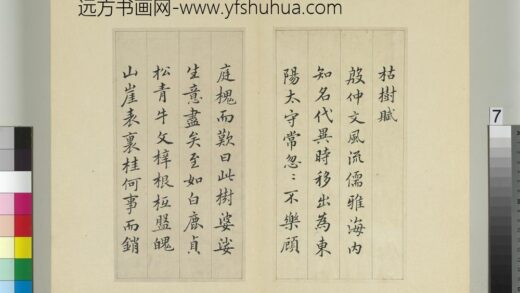 远方书画网-www.yfshuhua.com
枯樹賦
殷仲文風流儒雅海內
知名代異時移出為東
陽太守常忽〻不樂顧
庭槐而歎曰此樹婆娑
生意盡矣至如白鹿貞
松青牛文梓根柢盤魄
山崖表裏桂何事而銷
7